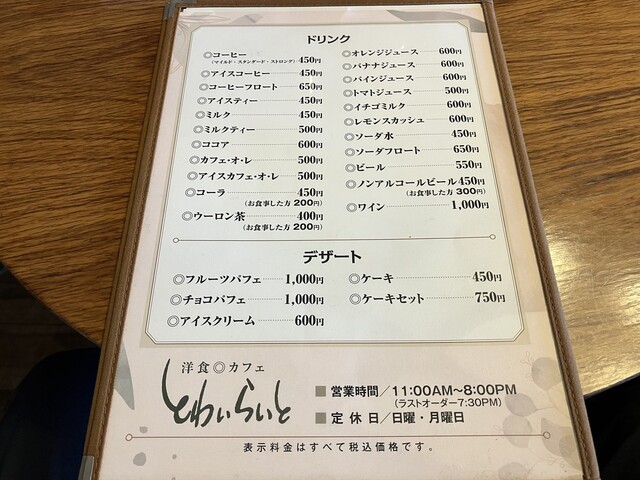 ドリンク
◎コーヒー 450円
(マイルド・スタンダード・ストロング)
◎アイスコーヒー 450円
◎コーヒーフロート 650円
◎アイスティー 450円
◎ミルク 450円
◎ミルクティー 500円
◎ココア 600円
◎カフェ・オ・レ 500円
◎アイスカフェ・オ・レ 500円
◎コーラ 450円
(お食事した方 200円)
◎ウーロン茶 400円
(お食事した方 200円)
◎オレンジジュース 600円
◎バナナジュース 600円
◎パインジュース 600円
◎トマトジュース 500円
◎イチゴミルク 600円
◎レモンスカッシュ 600円
◎ソーダ水 450円
◎ソーダフロート 650円
◎ビール 550円
◎ノンアルコールビール 450円
(お食事した方 300円)
◎ワイン 1,000円
デザート
◎フルーツパフェ 1,000円
◎チョコパフェ 1,000円
◎アイスクリーム 600円
◎ケーキ 450円
◎ケーキセット 750円
洋食◎カフェ
とわいらいと
■営業時間/11:00AM〜8:00PM
(ラストオーダー7:30PM)
■定休日/日曜・月曜日
表示料金はすべて税込価格です。